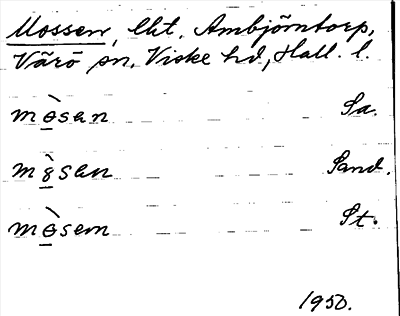 Mossen, lht. Ambjörntorp,
Värö sn, Viske hd, Hall. l.
mòsan Sa.
mòsan Sand.
mòsem St.
1950.